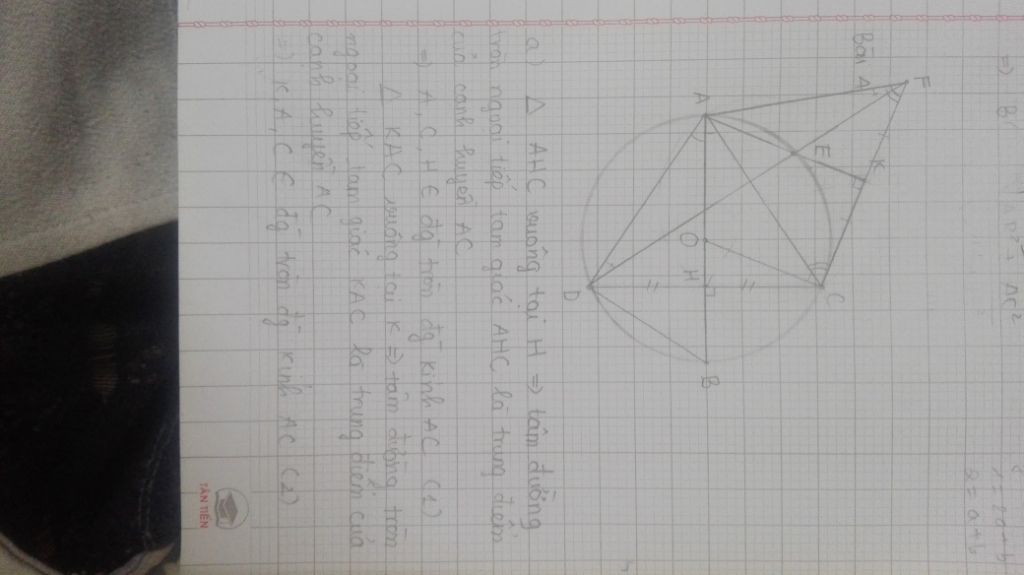 Bài 4
F
K
E
A
C
O
H
B
D
a) Δ AHC vuông tại H => tâm đường
tròn ngoại tiếp tam giác AHC là trung điểm
của cạnh huyền AC
=> A, C, H ∈ đg tròn đg kính AC (1)
Δ KAC vuông tại K => tâm đường tròn
ngoại tiếp tam giác KAC là trung điểm của
cạnh huyền AC
=> K, A, C ∈ đg tròn đg kính AC (2)
1 = 2a + b
2 = a + b
TÂN TIẾN